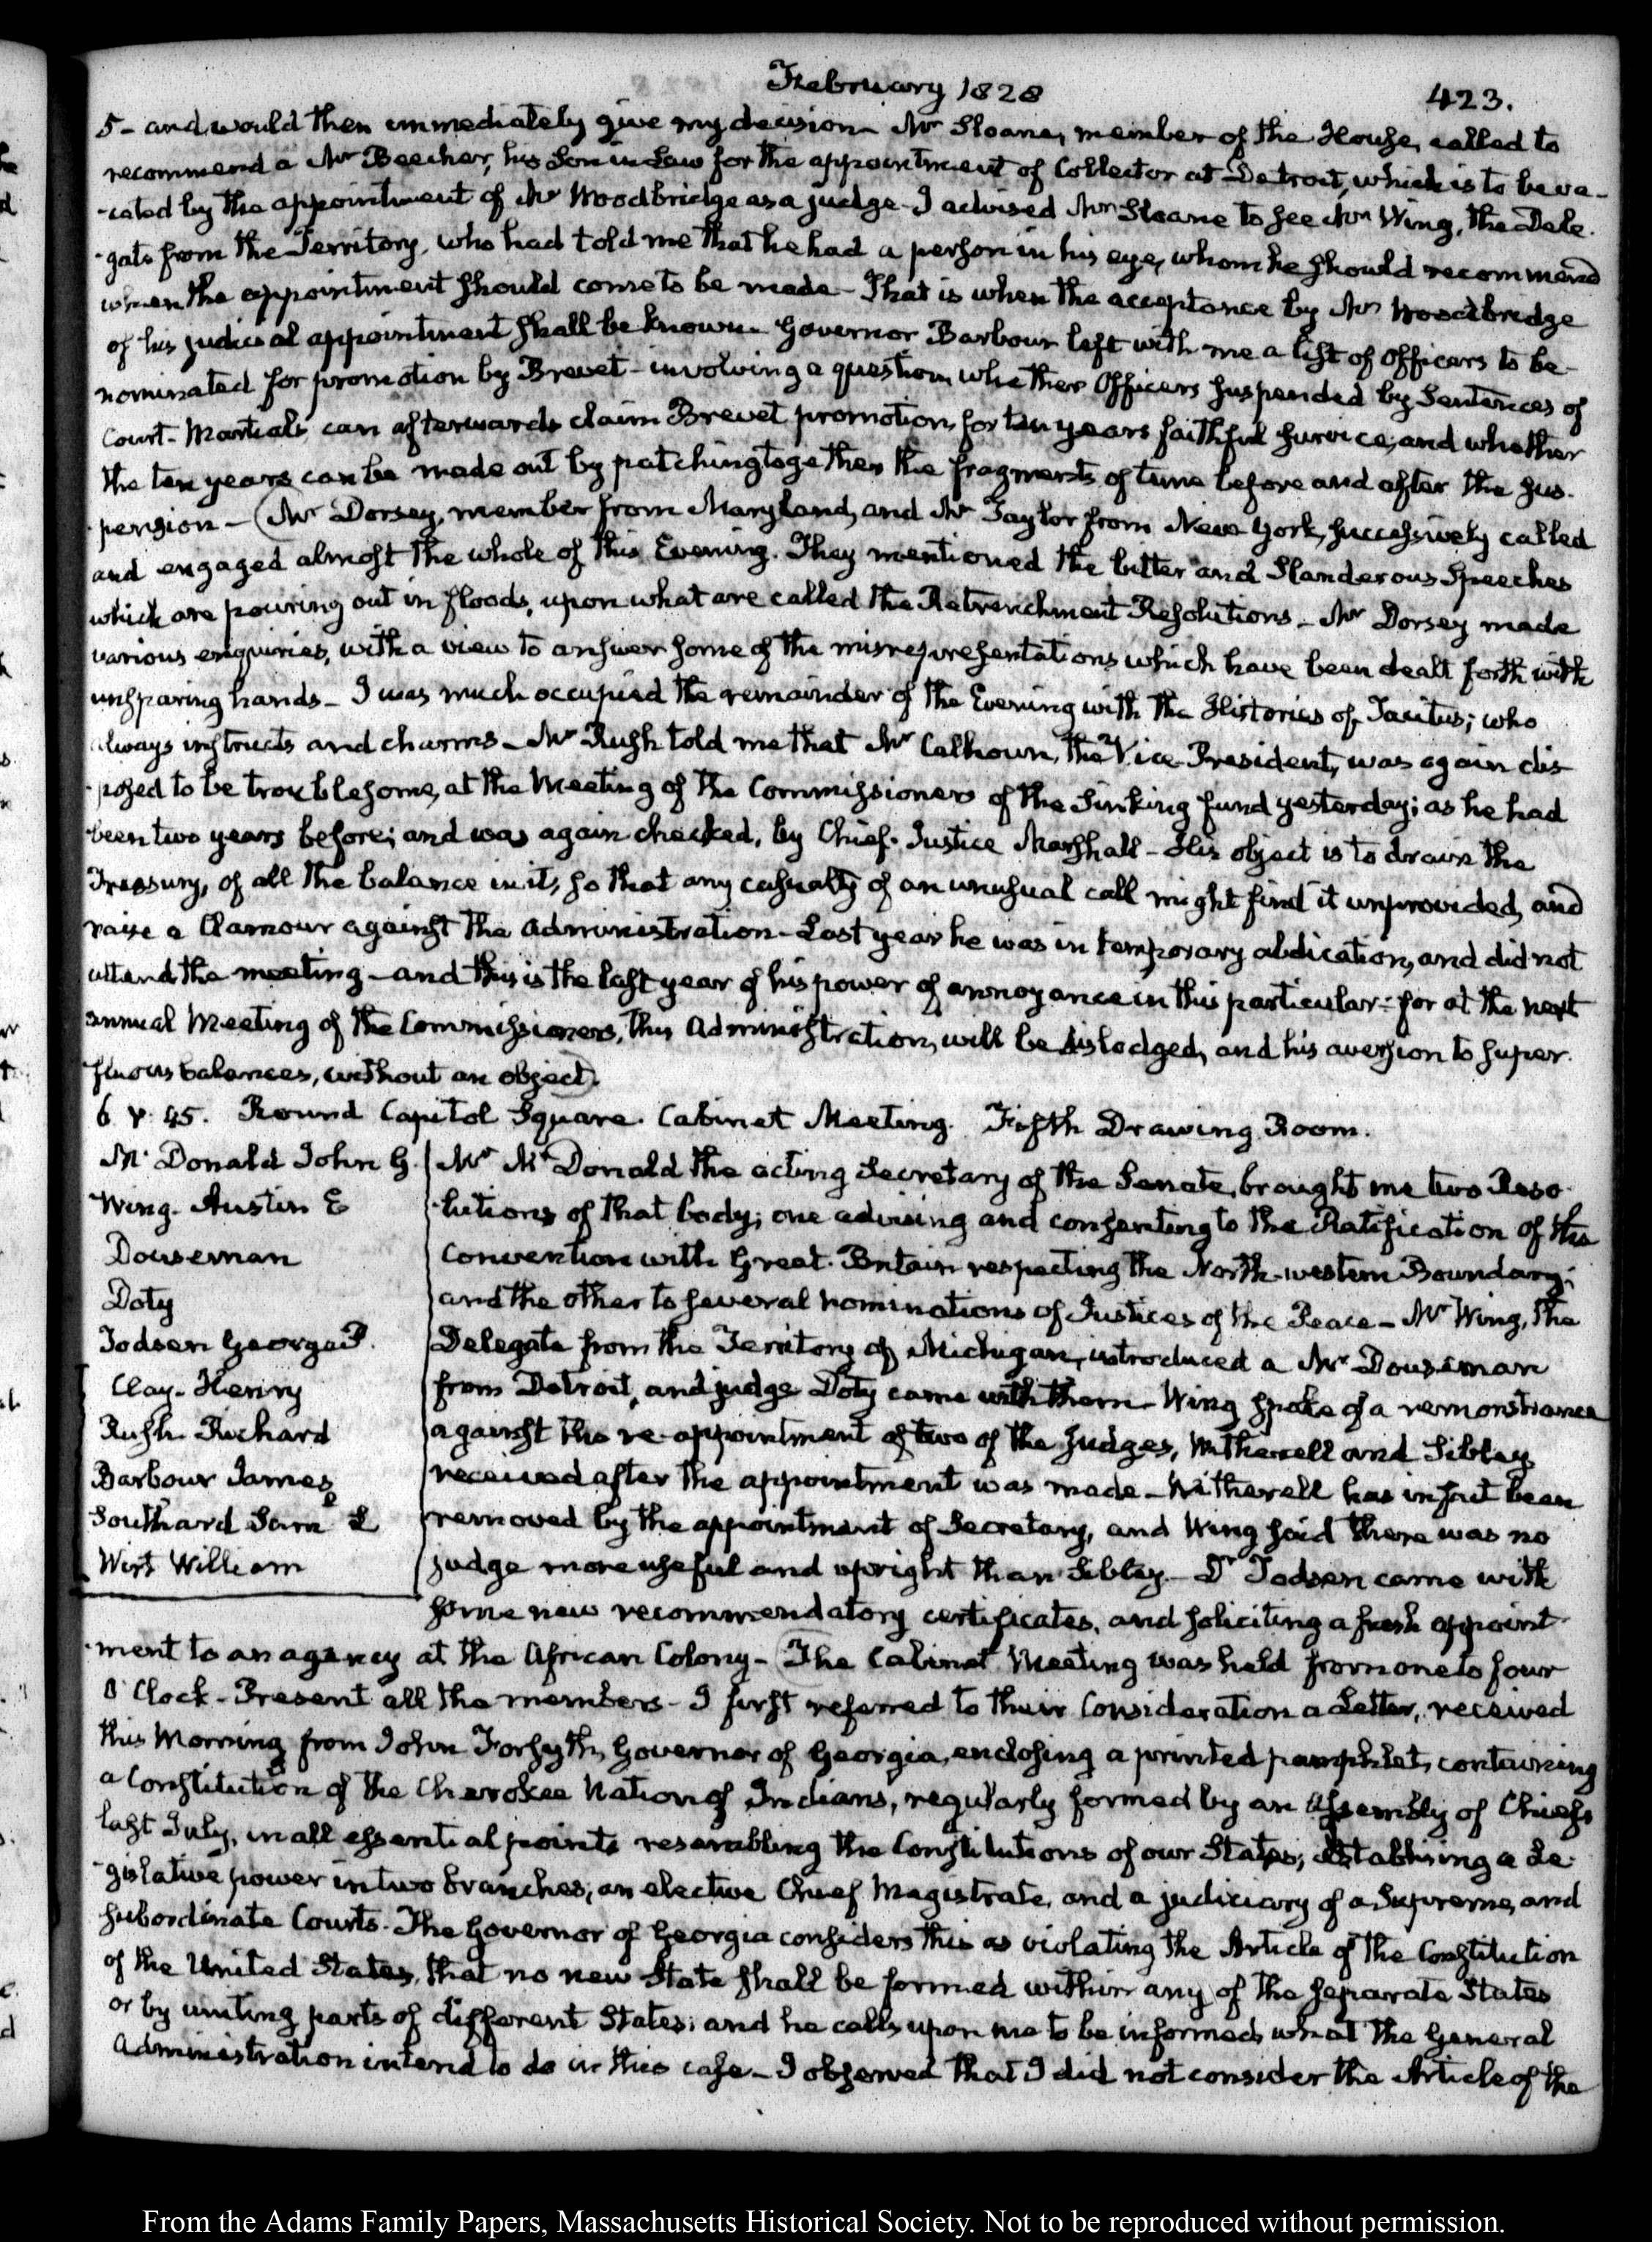 February 1828
423.
5- and would then immediately give my decision- Mr Sloane, member of the House, called to
recommend a Mr Beecher, his Son in Law for the appointment of Collector at Detroit, which is to be va-
-cated by the appointment of Mr Woodbridge as a judge- I advised Mr Sloane to see Mr Wing, the Dele-
-gate from the Territory, who had told me that he had a person in his eye, whom he should recommend
when the appointment should come to be made- That is when the acceptance by Mr Woodbridge
of his judicial appointment shall be known- Governor Barbour left with me a list of Officers to be
nominated for promotion by Brevet- involving a question whether Officers suspended by Sentences of
Court-Martial, can afterwards claim Brevet promotion, for ten years faithful service, and whether
the ten years can be made out by patching together the fragments of time before and after the sus-
-pension- (Mr Dorsey, member from Maryland, and Mr Taylor from New York, successively called
and engaged almost the whole of this Evening. They mentioned the bitter and Slanderous Speeches
which are pouring out in floods, upon what are called the Retrenchment Resolutions- Mr Dorsey made
various enquiries, with a view to answer some of the misrepresentations which have been dealt forth with
unsparing hands- I was much occupied the remainder of the Evening with the Histories of Tacitus; who
always instructs and charms- Mr Rush told me that Mr Calhoun, the Vice-President, was again dis-
-posed to be troublesome, at the Meeting of the Commissioners of the Sinking fund yesterday; as he had
been two years before; and was again checked, by Chief-Justice Marshall- His object is to drain the
Treasury, of all the balance in it, so that any casualty of an unusual call might find it unprovided, and
raise a Clamour against the Administration- Last year he was in temporary abdication, and did not
attend the meeting- and this is the last year of his power of annoyance in this particular: for at the next
annual Meeting of the Commissioners, this Administration, will be dislodged, and his aversion to super-
-fluous balances, without an object.)
6 V. 45. Round Capitol Square. Cabinet Meeting. Fifth Drawing Room.
Mc Donald John G.
Wing- Austin E
Douseman
Doty
Todsen George P.
Clay- Henry
Rush- Richard
Barbour James
Southard Sam l L
Wirt William
Mr McDonald the acting Secretary of the Senate, brought me two Reso-
-lutions of that body; one advising and consenting to the Ratification of the
Convention with Great-Britain respecting the North-western Boundary;
and the other to several nominations of Justices of the Peace- Mr Wing, the
Delegate from the Territory of Michigan, introduced a Mr Douseman
from Detroit, and judge Doty came with them- Wing spoke of a remonstrance
against the re-appointment of two of the judges, Witherell and Sibley
received after the appointment was made- Witherell has in fact been
removed by the appointment of Secretary, and Wing said there was no
judge more useful and upright than Sibley- Dr Todsen came with
some new recommendatory certificates, and soliciting a fresh appoint-
-ment to an agency at the African Colony- (The Cabinet Meeting was held from one to four
O'Clock- Present all the members- I first referred to their Consideration a Letter, received
this Morning from John Forsyth, Governor of Georgia, enclosing a printed pamphlet, containing
a Constitution of the Cherokee Nation of Indians, regularly formed by an Assembly of Chiefs
last July, in all essential points resembling the Constitutions of our States; establishing a Le-
-gislative power in two branches, an elective Chief Magistrate, and a judiciary of a Supreme, and
subordinate Courts- The Governor of Georgia considers this as violating the Article of the Constitution
of the United States, that no new State shall be formed within any of the separate States
or by uniting parts of different States; and he calls upon me to be informed, what the General
Administration intend to do in this case- I observed that I did not consider the Article of the
From the Adams Family Papers, Massachusetts Historical Society. Not to be reproduced without permission.